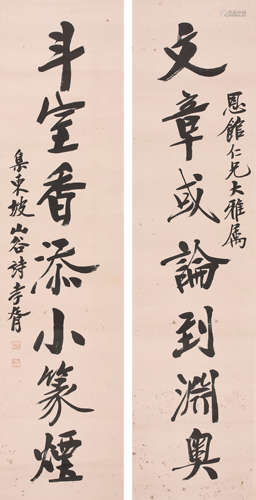 恩馆仁兄大雅属
文章或論到淵奥
斗室香添小篆煙
集東坡山谷詩孝胥